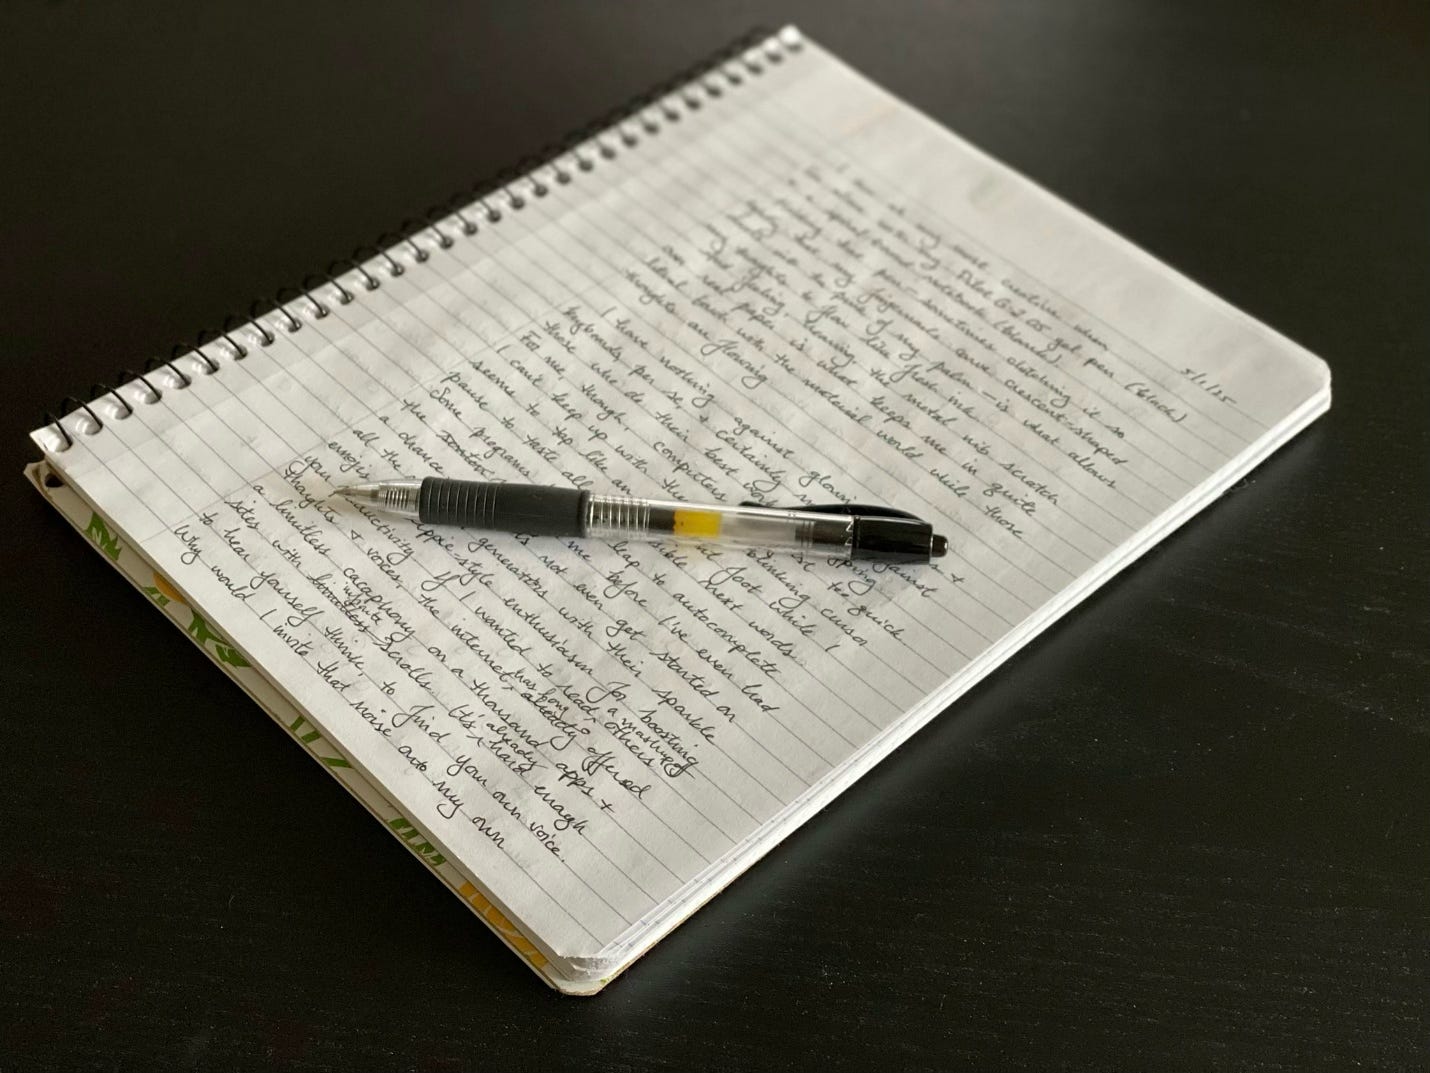 5/1/15
I am at my most creative when
I'm alone with my Pilot G-2 05 gel pen (black)
& a spiral-bound notebook (blank)
pushing the pen — sometimes clutching it so
tightly that my fingernails carve crescent-shaped
into the palm — is what allows
my thoughts to flow like fresh ink
that feeling, hearing the metal nib scratch
over real paper is what keeps me in quite
literal touch with the material world while those
thoughts are flowing
I have nothing against glowing
keyboards per se, & certainly not against
those who do their best
For me, though, computers
I can't keep up with the blinking cursor
seems to tap like an foot while I
pause to taste all
Some programs leap to autocomplete
the next words before I've even had
a chance does not even get me started on
all the generators with their sparkle
emoji enthusiasm for boosting
your productivity. If I wanted to read a mashup of others'
thoughts & voices, the internet has long already offered
a limitless cacaphony on a thousand apps +
sites with infinite scrolls. It's already hard enough
to hear yourself think, to find your own voice.
Why would I invite that noise onto my own